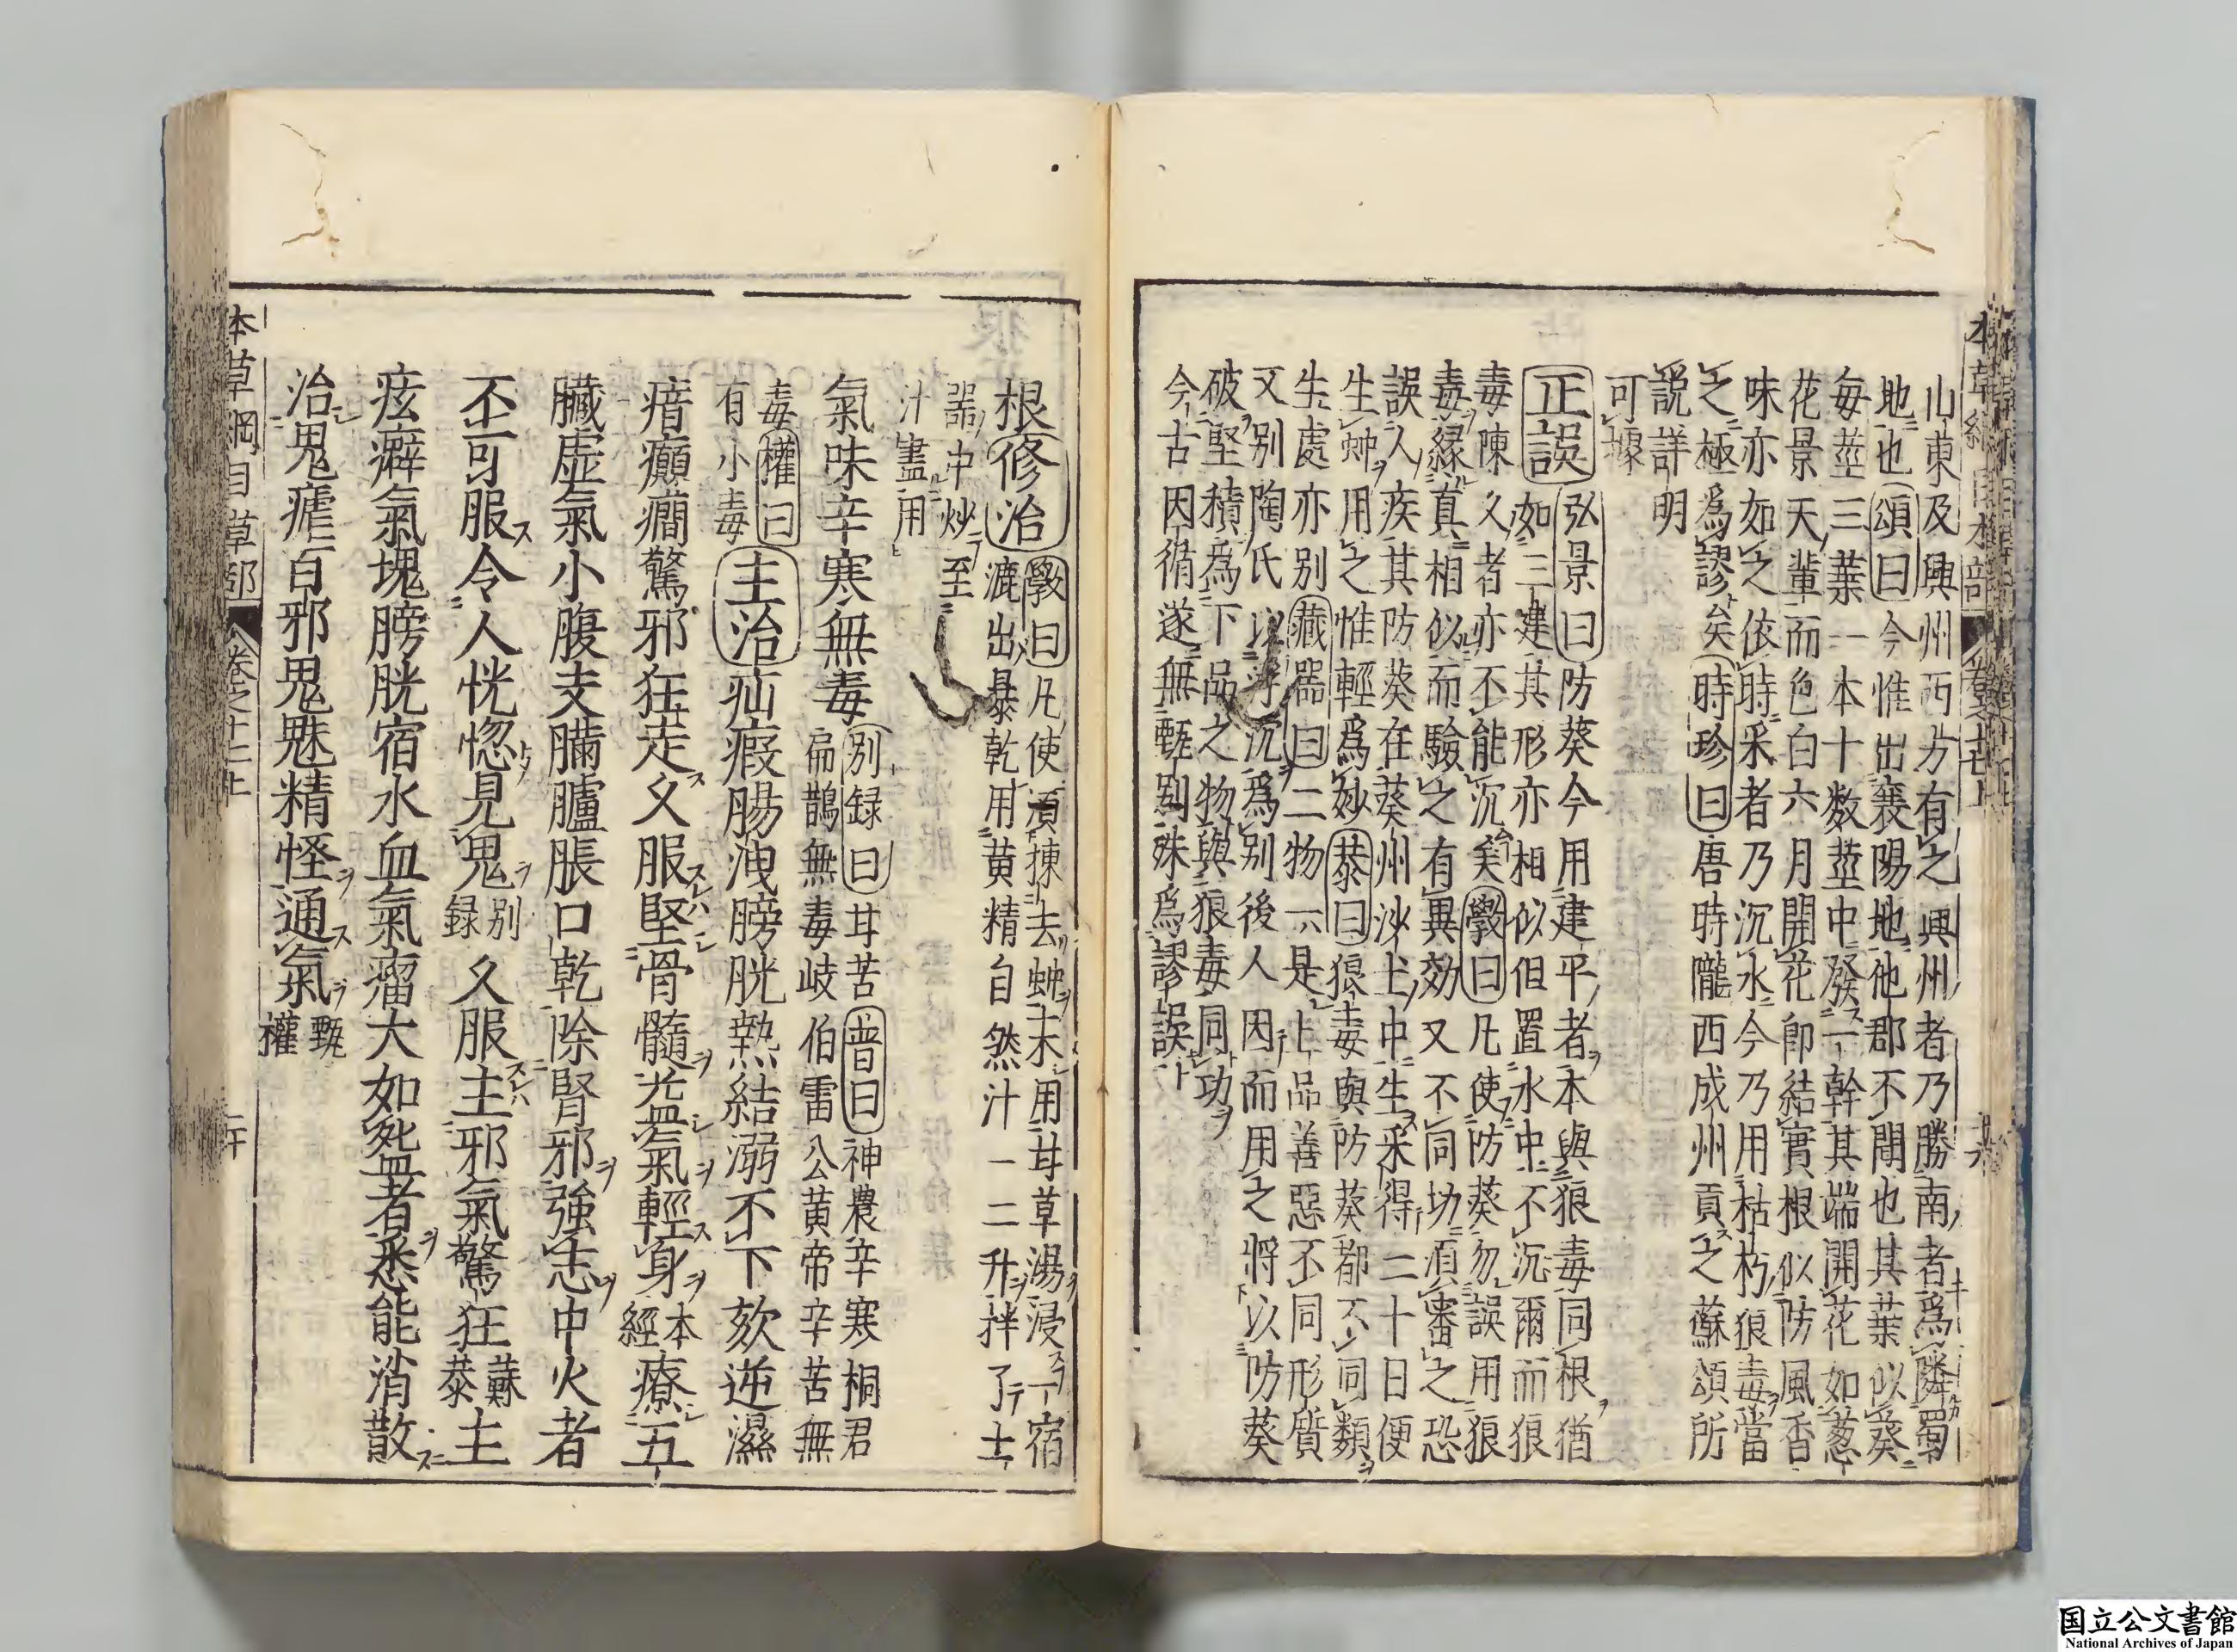 山東及興州西方有之興州者乃勝南者爲隣蜀
地也頌曰今惟出襄陽地他郡不聞也其葉似葵
每莖三葉一本十數莖中發一幹其端開花如葱
花景天輩而色白六月開花卽結實根似防風香
味亦如之依時采者乃沉水今乃用枯朽狼毒當
之極爲謬矣時珍曰唐時隴西成州貢之蘇頌所
説詳明
可據
正誤弘景曰防葵今用建平者本與狼毒同根猶
如三建其形亦相似但置水中不沉爾而狼
毒陳久者亦不能沉矣斅曰凡使防葵勿誤用狼
毒緣真相似而驗之有異効又不同切須審之恐
誤人疾其防葵在葵州沙土中生采得二十日便
生蚛用之惟輕爲妙恭曰狼毒與防葵都不同類
生處亦別藏器曰二物一是上品善惡不同形質
又别陶氏以浮沉爲別後人因而用之將以防葵
破堅積爲下品之物與狼毒同功
今古因循遂無甄别殊爲謬誤
根修治斅曰凡使須揀去蚛末用甘草湯浸一宿
漉出暴乾用黄精自然汁一二升拌了土
器中炒至
汁盡用
氣味辛寒無毒别録曰甘苦普曰神農辛寒桐君
扁鵲無毒岐伯雷公黄帝辛苦無
毒權曰
有小毒
主治疝瘕腸洩膀胱熱結溺不下欬逆濕
瘖癲癇驚邪狂走久服堅骨髓益氣輕身本經療五
臟虛氣小腹支滿臚脹口乾除腎邪強志中火者
不可服令人恍惚見鬼别録久服主邪氣驚狂蘇恭主
痃癖氣塊膀胱宿水血氣瘤大如盌者悉能消散
治鬼瘧百邪鬼魅精怪通氣甄權
本草綱目草部 卷之十七上
国立公文書館
National Archives of Japan